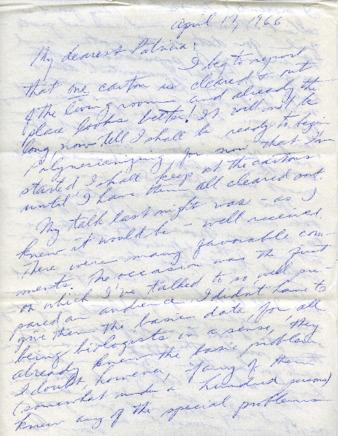 April 17, 1966
My dearest Patricia:
I beg to report
that one carton is cleared out
of the living room and already the
place looks better! It will not be
long now till I shall be ready to begin
Polynesianizing for now that I'm
started I shall keep at the cartons
until I have them all cleared out.
My talk last night was - as I
knew it would be - well received.
There were many favorable com-
ments. The occasion was the first
on which I've talked to so well pre-
pared an audience. I didn't have to
give them the basic data, for all
being biologists in a sense, they
already knew the basic problem.
I doubt, however, if any of them
(somewhat under a hundred persons)
knew any of the special problems